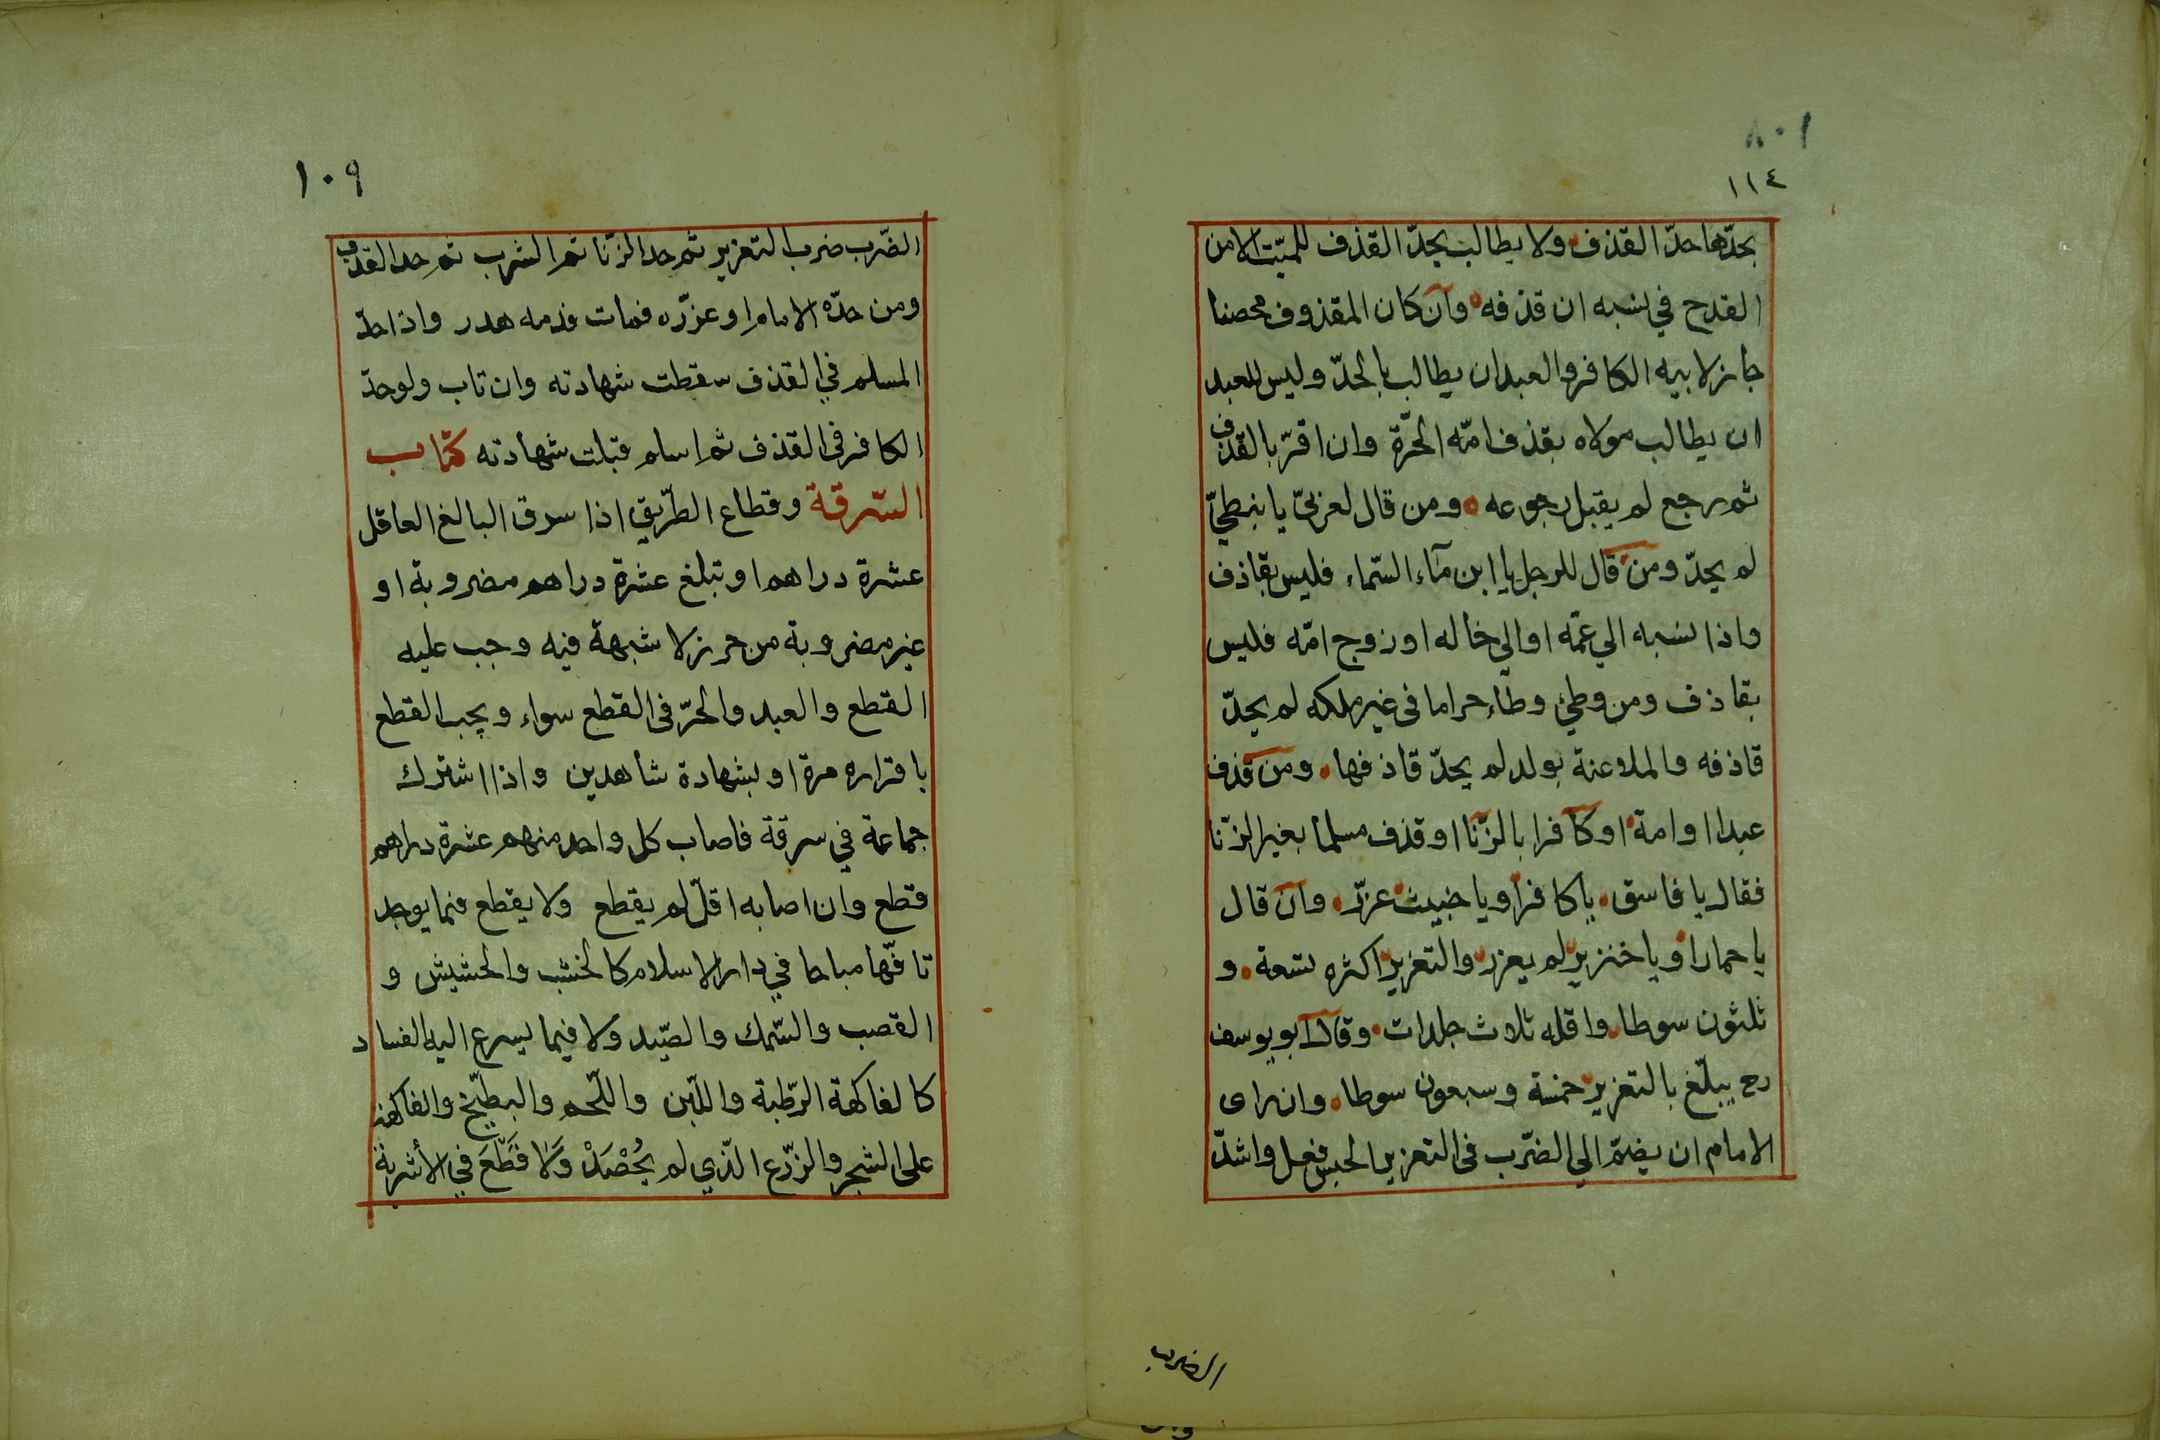 ١٠٨
١١٤
بحدّها حدّ القذف ولا يطالب بحدّ القذف للميّت الا من
القدح في نسبه ان قذفه وان كان المقذوف محصنا
جاز لابيه الكافر والعبد ان يطالب بالحدّ وليس للعبد
ان يطالب مولاه بقذف امّه الحرّة وان اقرّ بالقذف
ثم رجع لم يقبل رجوعه ومن قال لعربيّ يا نبطيّ
لم يحدّ ومن قال للرجل يا ابن مآء السّماء فليس بقاذف
واذا نسبه الي عمّه او الي خاله او زوج امّه فليس
بقاذف ومن وطئ وطاء حراما فى غير ملكه لم يحدّ
قاذفه والملاعنة بولد لم يحدّ قاذفها ومن قذف
عبدا او امة او كافرا بالزّنا او قذف مسلما بغير الزّنا
فقال يا فاسق يا كافر او يا خبيث عزّر وان قال
يا حمار او يا خنزير لم يعزر والتعزير اكثره تسعة و
ثلثون سوطا واقله ثلاث جلدات وقال ابو يوسف
رح يبلّغ بالتعزير خمسة وسبعون سوطا وان راى
الامام ان يضمّ الي الضّرب فى التعزير الحبس فعل واشدّ
الضرب
١٠٩
الضّرب ضرب التعزير ثم حد الزّنا ثم الشرب ثم حد القذف
ومن حدّه الامام او عزّره فمات فدمه هدر واذا حدّ
المسلم في القذف سقطت شهادته وان تاب ولو حدّ
الكافر فى القذف ثم اسلم قبلت شهادته كتاب
السّرقة وقطاع الطّريق اذا سرق البالغ العاقل
عشرة دراهم او تبلغ عشرة دراهم مضروبة او
غير مضروبة من حرز لا شبهة فيه وجب عليه
القطع والعبد والحرّ فى القطع سواء ويجب القطع
باقراره مرة او بشهادة شاهدين واذا اشترك
جماعة في سرقة فاصاب كل واحد منهم عشرة دراهم
قطع وان اصابه اقلّ لم يقطع ولا يقطع فيما يوجد
تافّها مباحا في دار الاسلام كالخشب والحشيش و
القصب والسّمك والصّيد ولا فيما يسرع اليه الفساد
كالفاكهة الرّطبة واللّبن واللّحم والبطّيخ والفاكهة
على الشجر والزّرع الّذي لم يُحْصَدْ وَلَا قَطْعَ في الأشربة